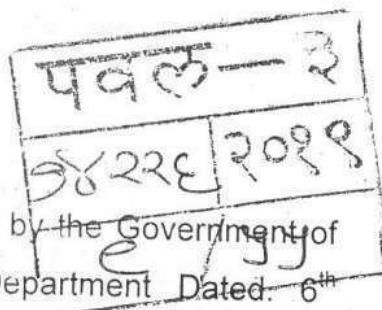 पवल — ३
१४२२६ २०१९
by the Government of
Department Dated. 6th